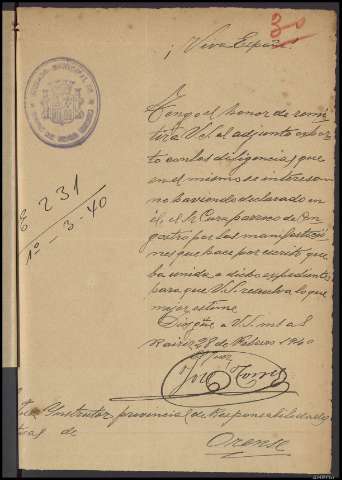 30
¡Viva España
JUZGADO MUNICIPAL
Tengo el honor de remi
tir a V.S. el adjunto exhor
to con las diligencias que
en el mismo se interesan
no habiendo declarado en
él, el Sr Cura parroco de
por las manifestacio
nes que hace por escrito que
va unido a dicho expediente,
para que V.S. resuelva lo que
mejor estime
Dios gñe a V.S. ms as
Rairiz 28 de Febrero 1940
E 231
1º - 3 - 40
Instructor provincial de Responsabilidades
de
Orense